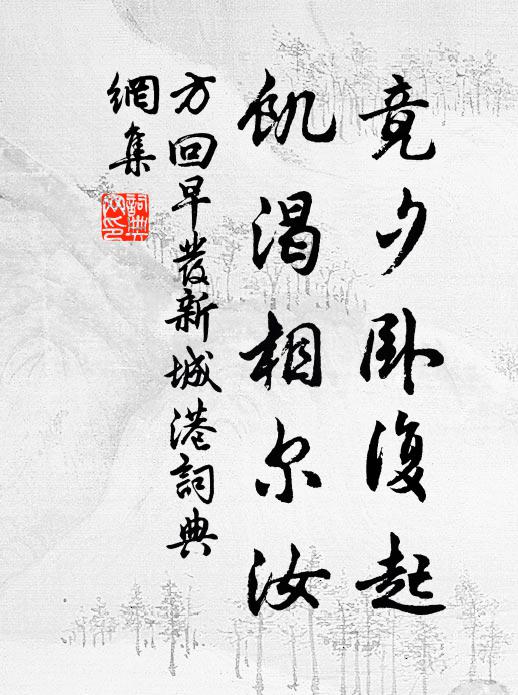 竟夕卧復起
飢渴相尔汝
方回早發新城港詞典
網集
詞典
网印